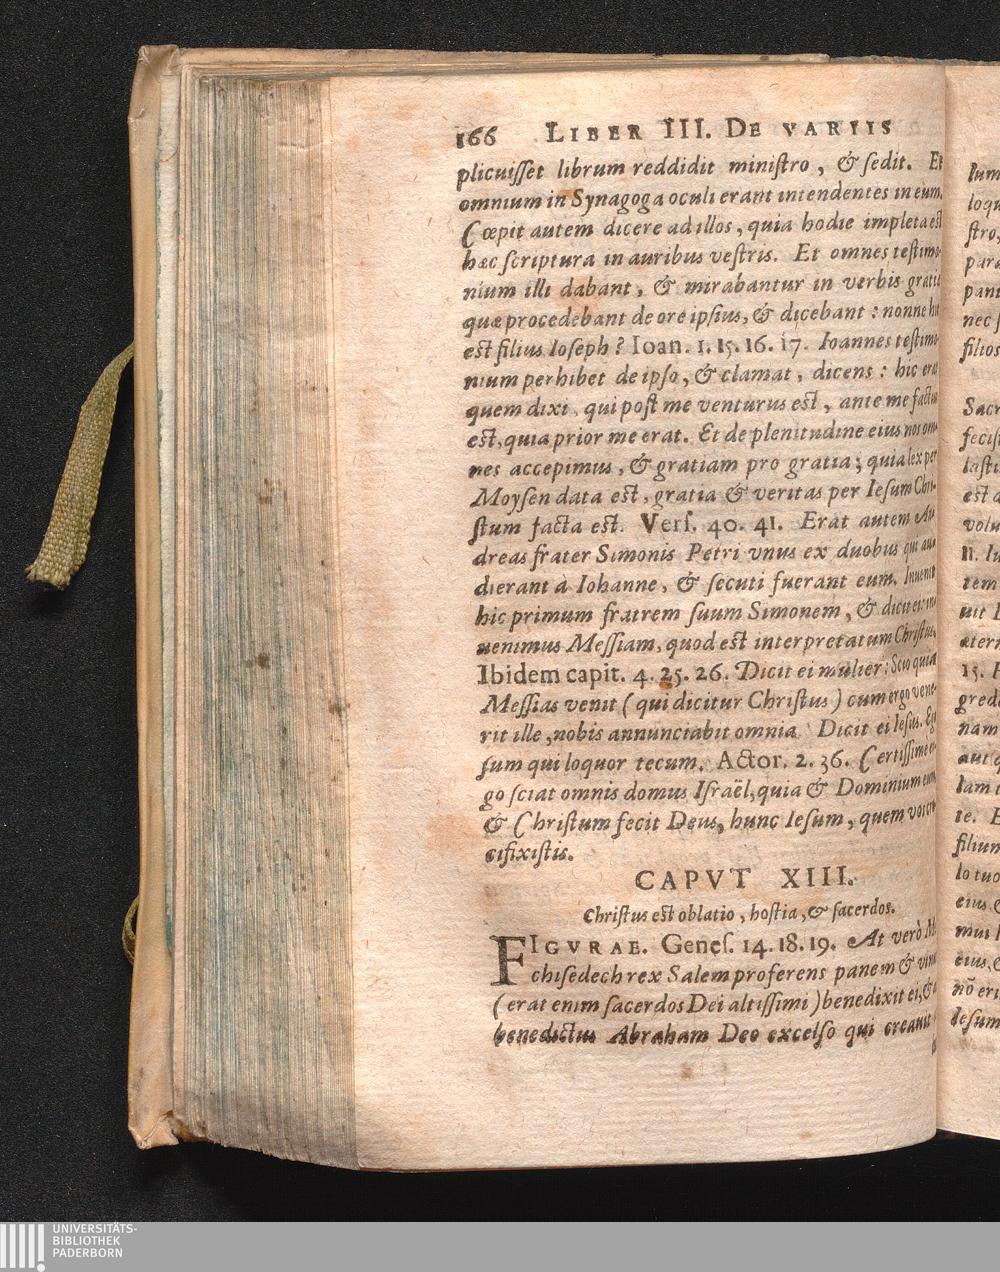 166 LIBER III. DE VARIIS
plicuiſſet librum reddidit miniſtro, & ſedit. Et
omnium in Synagoga oculi erant intendentes in eum.
Cœpit autem dicere ad illos, quia hodie impleta eſt
hæc ſcriptura in auribus veſtris. Et omnes teſtimo-
nium illi dabant, & mirabantur in verbis gratiæ
quæ procedebant de ore ipſius, & dicebant: nonne hic
eſt filius Ioſeph? Ioan. 1. 15. 16. 17. Ioannes teſtimo-
nium perhibet de ipſo, & clamat, dicens: hic erat
quem dixi, qui poſt me venturus eſt, ante me factus
eſt, quia prior me erat. Et de plenitudine eius nos om-
nes accepimus, & gratiam pro gratia; quia lex per
Moyſen data eſt, gratia & veritas per Ieſum Chri-
ſtum facta eſt. Verſ. 40. 41. Erat autem An-
dreas frater Simonis Petri vnus ex duobus qui au-
dierant à Iohanne, & ſecuti fuerant eum. Inuenit
hic primum fratrem ſuum Simonem, & dicit ei: in-
uenimus Meſſiam, quod eſt interpretatum Chriſtus.
Ibidem capit. 4. 25. 26. Dicit ei mulier: Scio quia
Meſſias venit (qui dicitur Chriſtus) cum ergo vene-
rit ille, nobis annunciabit omnia. Dicit ei Ieſus. Ego
ſum qui loquor tecum. Actor. 2. 36. Certiſſimè er-
go ſciat omnis domus Iſraël, quia & Dominum eum
& Chriſtum fecit Deus, hunc Ieſum, quem vos cru-
cifixiſtis.
CAPVT XIII.
Chriſtus eſt oblatio, hoſtia, & ſacerdos.
FIGVRAE. Geneſ. 14. 18. 19. At verò Mel-
chiſedech rex Salem proferens panem & vinum
(erat enim ſacerdos Dei altiſſimi) benedixit ei, &
benedictus Abraham Deo excelſo qui creauit
lum
loqu
ſtro,
para
pani
nec ſ
filios
Sacr
feciſt
laſti
eſt a
volu
11. Iu
tem
uit I
ætern
15. F
gredi
nam
aut q
lam
te. E
filium
lo tuo
eius, &
mui
eius, &
nõ eri
Ieſum
UNIVERSITÄTS-
BIBLIOTHEK
PADERBORN